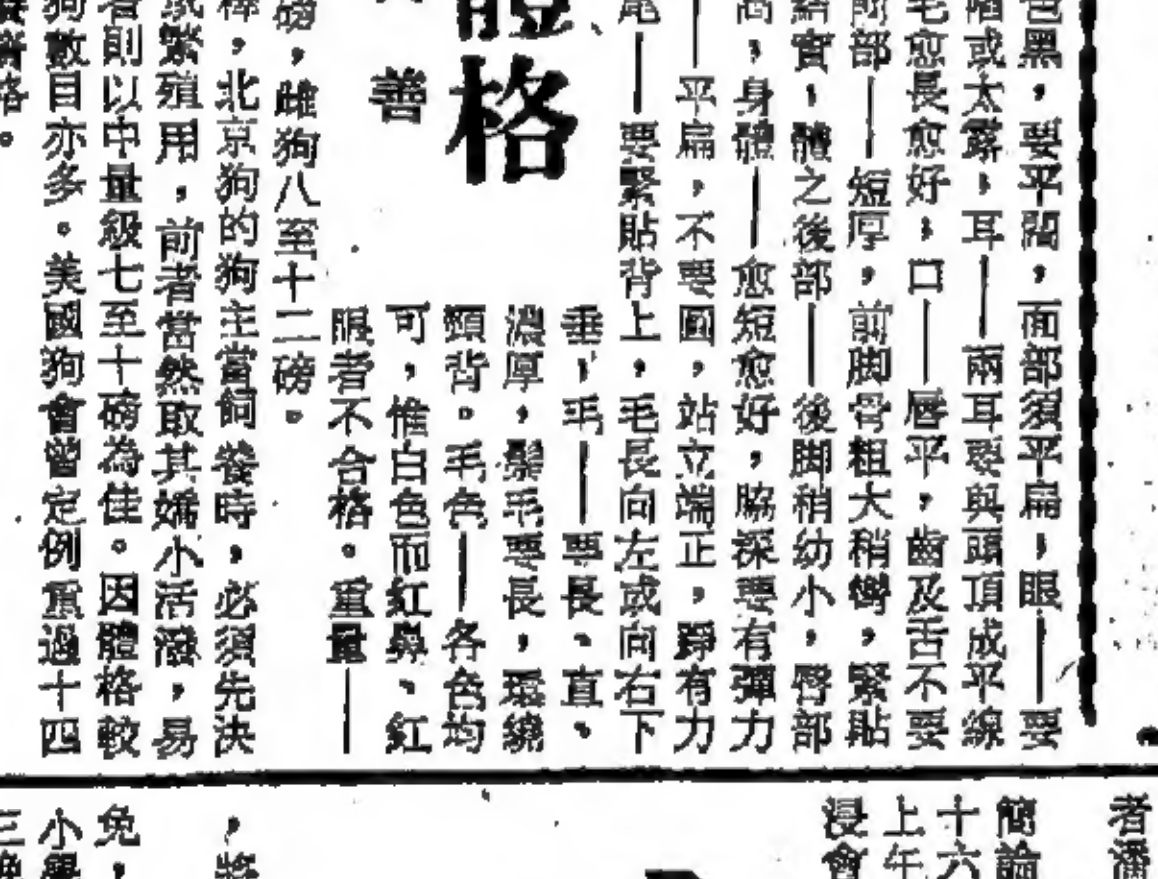 色黑，要平闊，面部須平扁，眼——要
陷或太露，耳——兩耳要與頭頂成平線
毛愈長愈好，口——唇平，齒及舌不要
前部——短厚，前脚骨粗大稍彎，緊貼
結實，體之後部——後脚稍幼小，臀部
高，身體——愈短愈好，脇深要有彈力
——平扁，不要圓，站立端正，踭有力
尾——要緊貼背上，毛長向左或向右下
垂，毛——要長、直、
濃厚，鬃毛要長，環繞
頸背。毛色——各色均
可，惟白色而紅鼻、紅
眼者不合格。重量——
體格
善
磅，雌狗八至十二磅。
棒，北京狗的狗主當飼養時，必須先決
或繁殖用，前者當然取其嬌小活潑，易
者則以中量級七至十磅為佳。因體格較
狗數目亦多。美國狗會曾定例重過十四
格。
者潘
簡論
十六
上午
浸會
，將
免，
小學
三晚